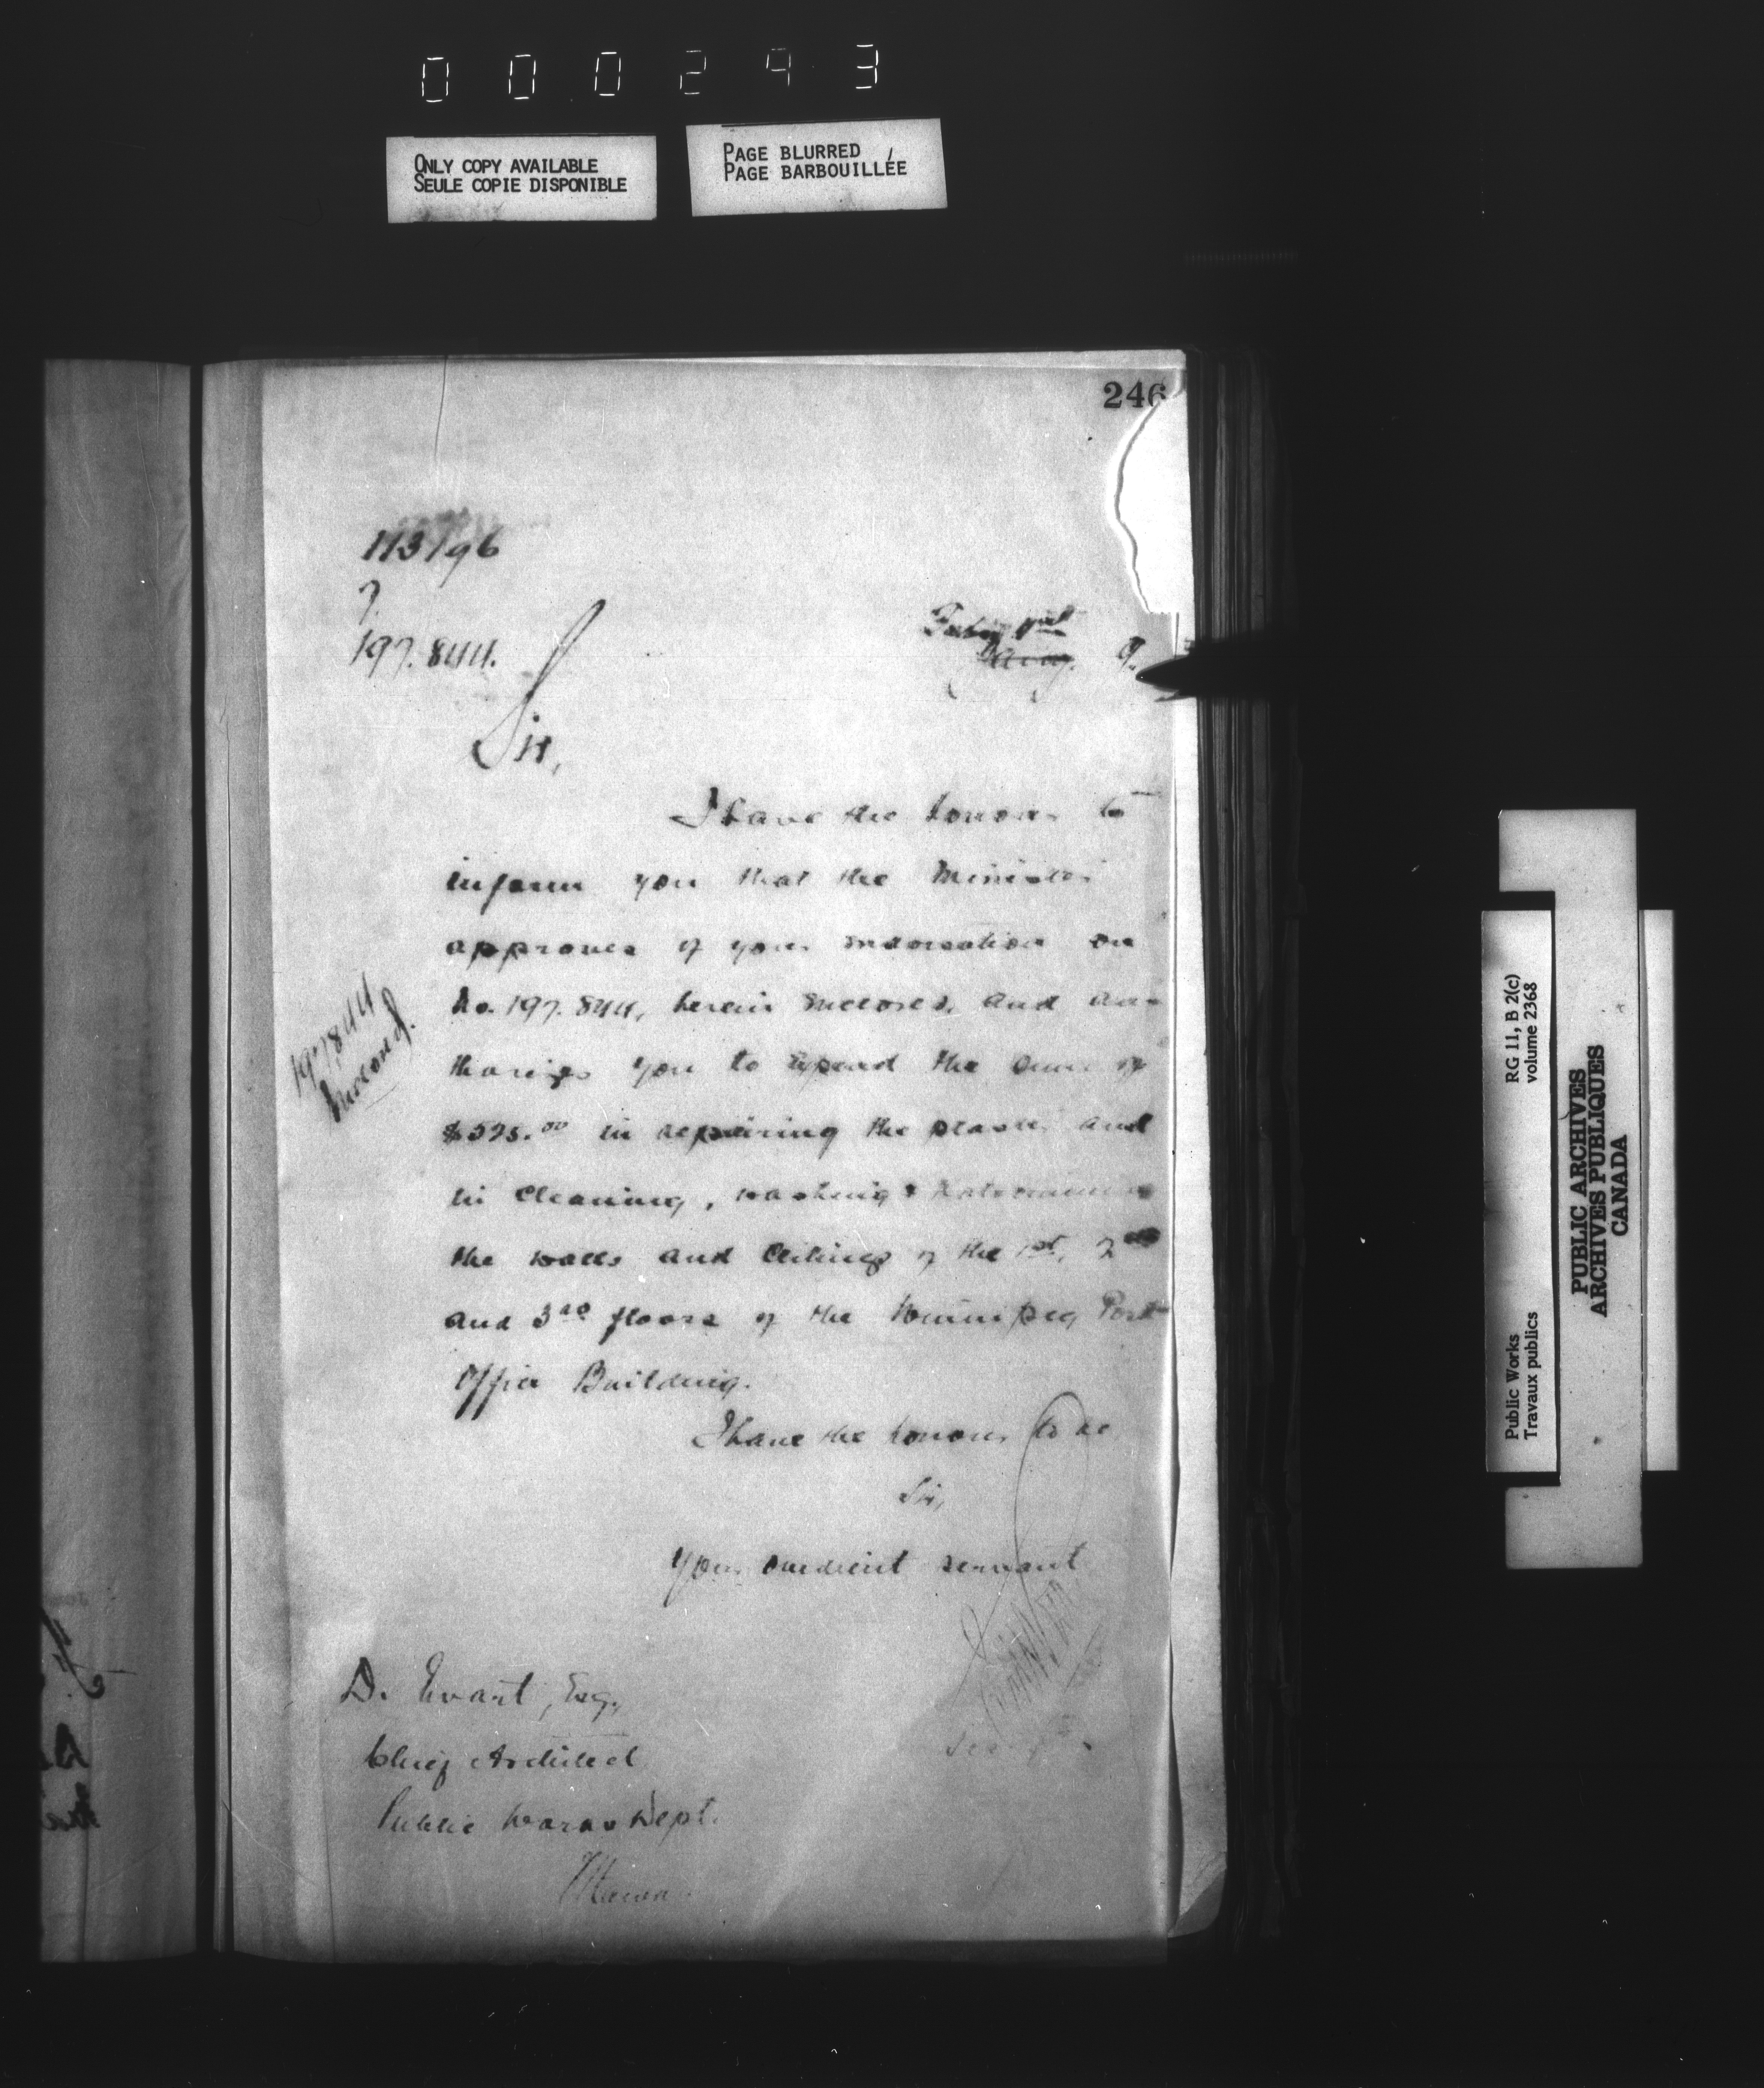 000243
ONLY COPY AVAILABLE
SEULE COPIE DISPONIBLE
PAGE BLURRED
PAGE BARBOUILLÉE
246
197.844.
Sir,
I have the honour to
inform you that the Minister
approves of your on
No. 197.844, herein and au-
thorizes you to the sum of
in repairing the plaster and
in cleaning, washing & Kalsomining
the walls and Ceilings of the 1st, 2nd
and 3rd floors of the Winnipeg Post
Office Building.
197844
I have the honour to be
Sir,
Your obedient servant
D. Ewart, Esq.,
Chief Architect
Public Works Dept.
Ottawa.
Public Works
Travaux publics
RG 11, B 2(c)
volume 2368
PUBLIC ARCHIVES
ARCHIVES PUBLIQUES
CANADA